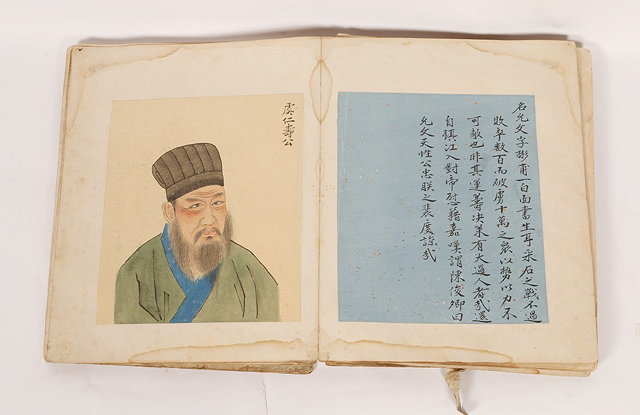 名允文字彬甫一白面書生耳采石之戰不過
敗卒數百而破虜十萬之衆以勢以力不
可敵也非其運籌決策有大過人者哉還
自鎮江入對帝慰藉嘉嘆謂陳俊卿曰
允文天性公忠朕之裴度諒哉
虞仁壽公